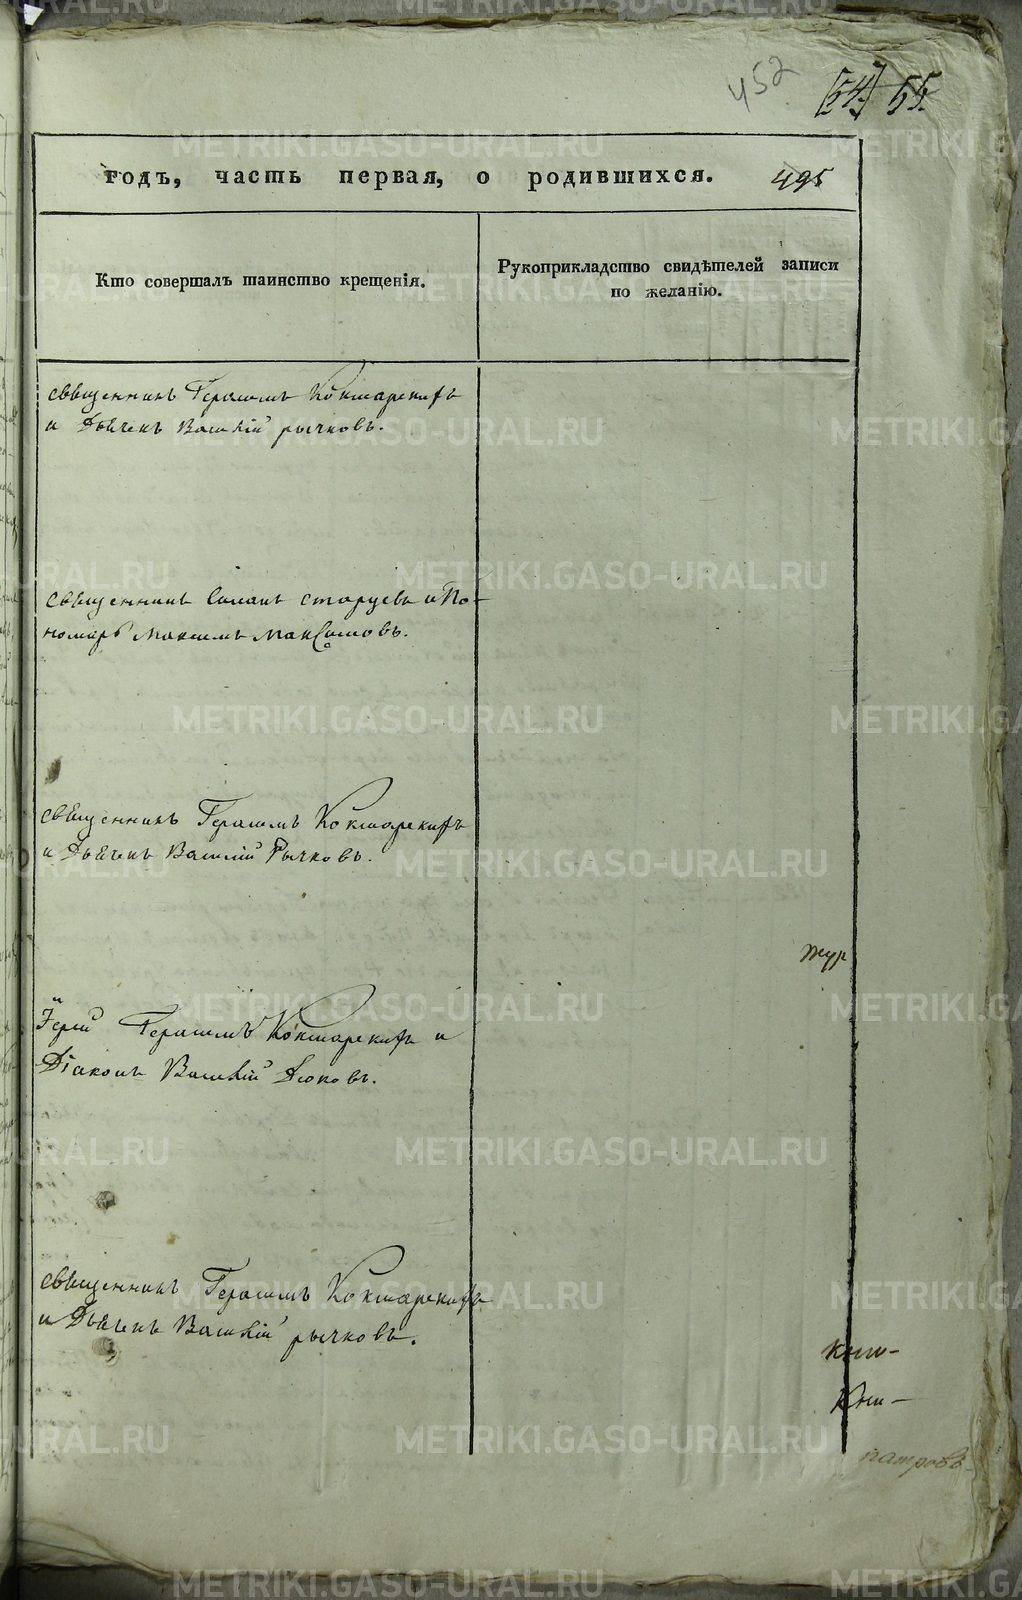 452
(54) 55.
годъ, часть первая, о родившихся. 495
Кто совершалъ таинство крещенія.
Рукоприкладство свидѣтелей записи
по желанію.
священникъ Герасимъ Кокшарскихъ
и Дьячекъ Василій рычковъ.
священникъ Симанъ старцевъ и По-
номарь Максимъ Максимовъ.
священникъ Герасимъ Кокшарскихъ
и Дьячекъ Василій Рычковъ.
Іерей Герасимъ Кокшарскихъ и
Діаконъ Василій Дюковъ.
священникъ Герасимъ Кокшарскихъ
и Дьячекъ Василій рычковъ.
METRIKI.GASO-URAL.RU